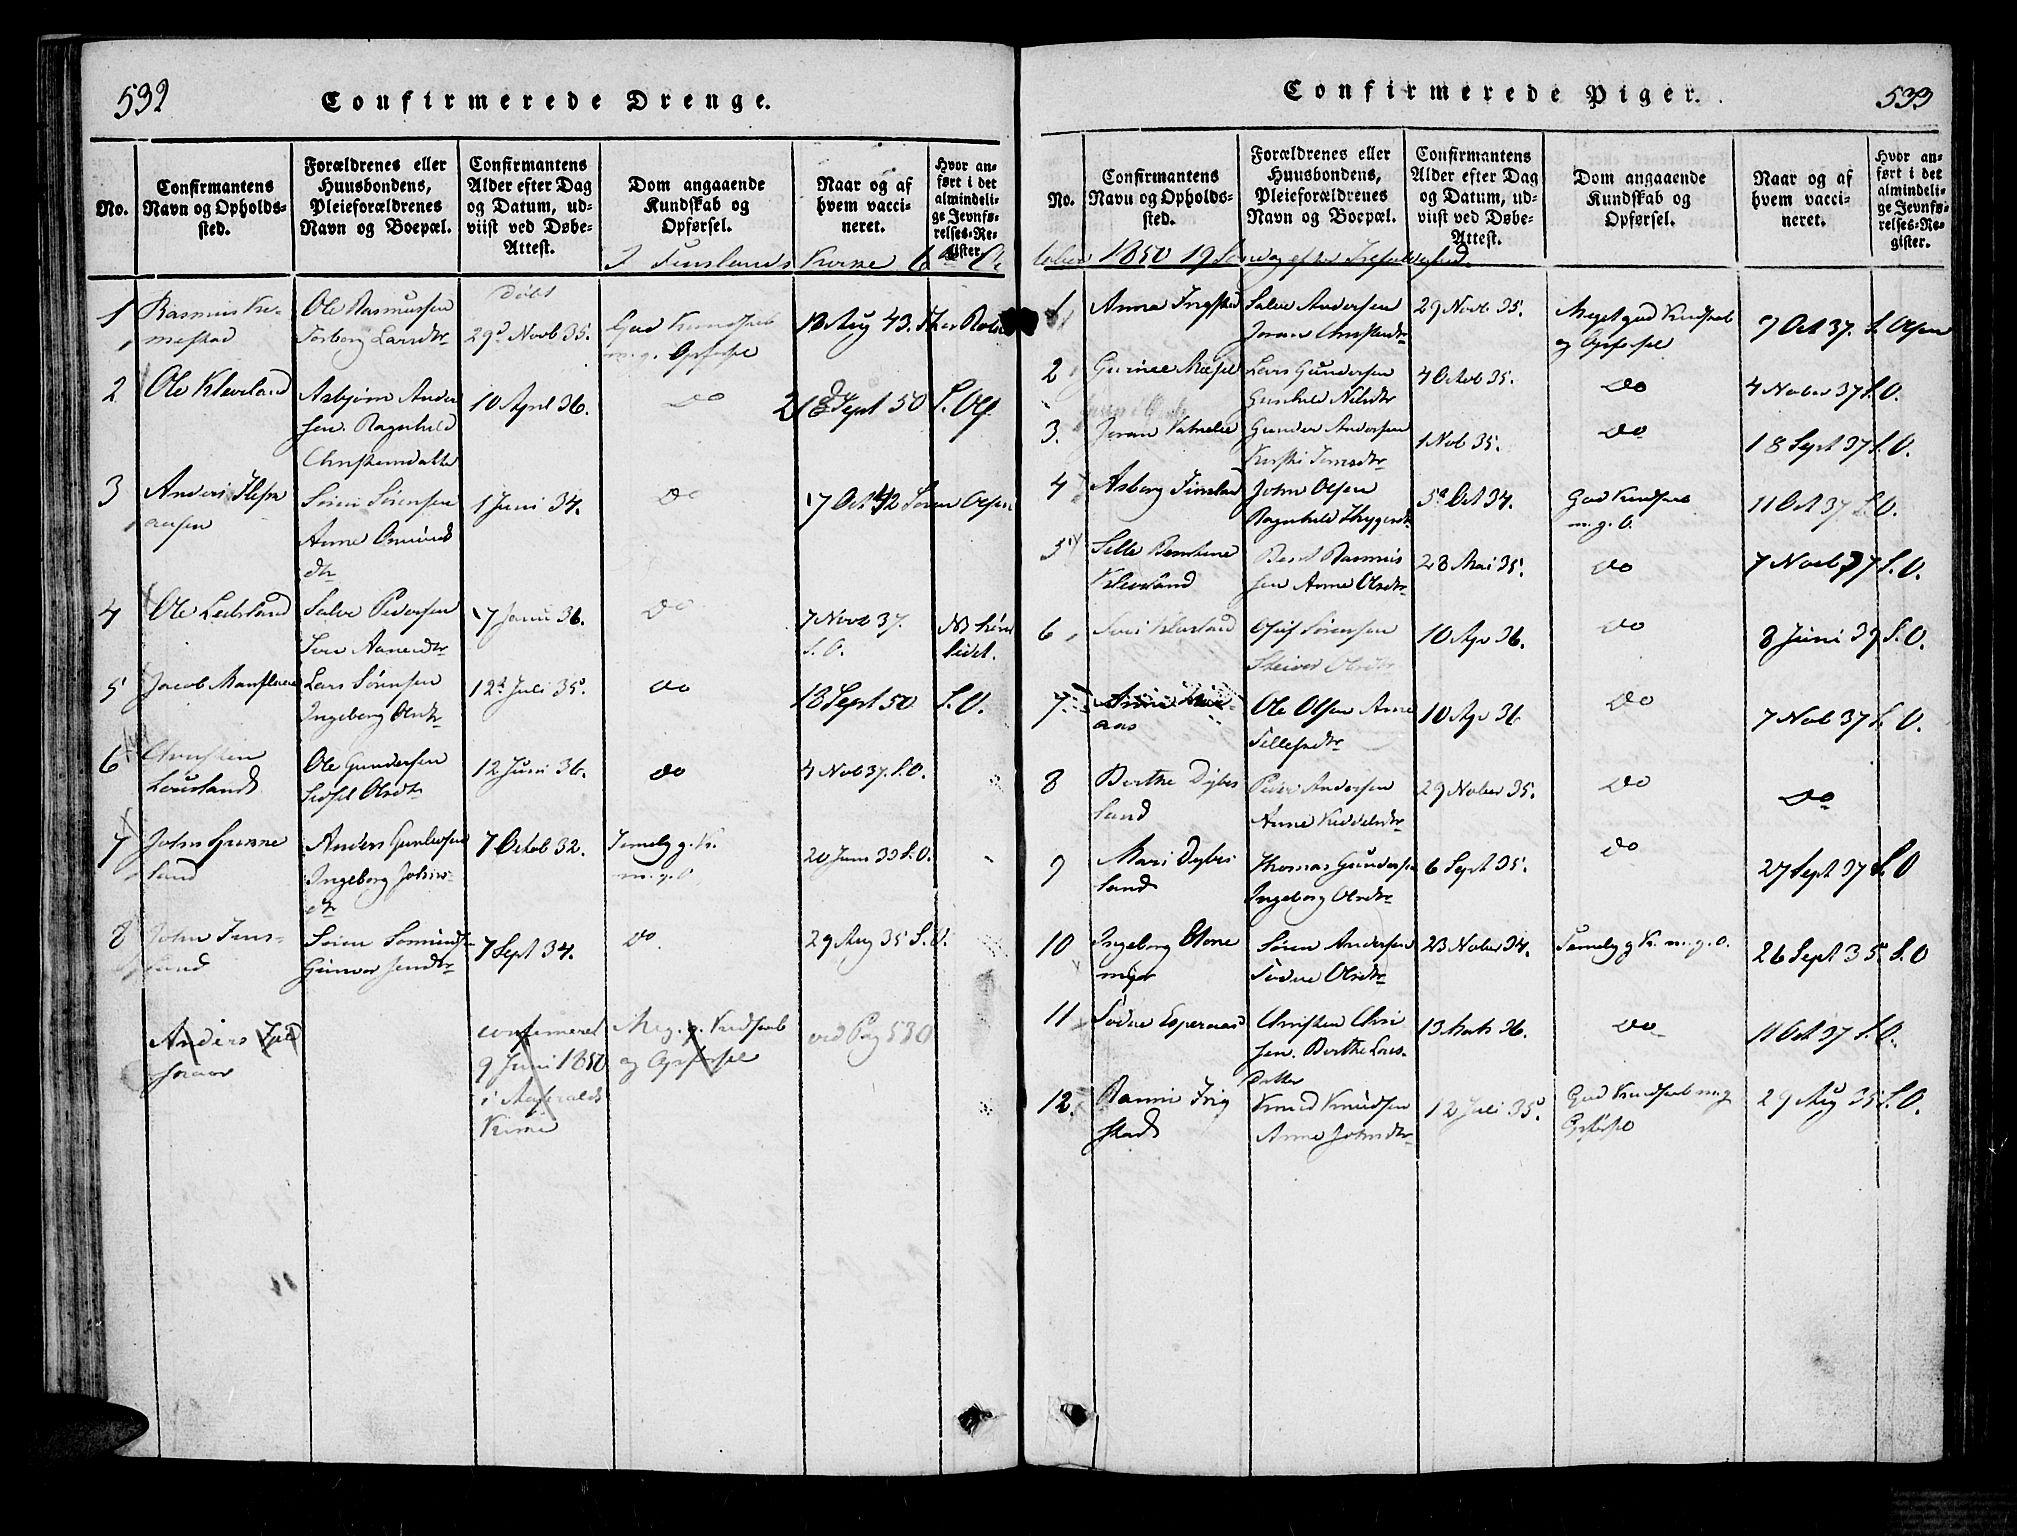 532
Confirmerede Drenge.
No.
Confirmantens
Navn og Opholds-
sted.
Forældrenes eller
Huusbondens,
Pleieforældrenes
Navn og Boepæl.
Confirmantens
Alder efter Dag
og Datum, ud-
viist ved Døbe-
Attest.
Dom angaaende
Kundskab og
Opførsel.
Naar og af
hvem vacci-
neret.
Hvor an-
ført i det
almindeli-
ge Jevnfø-
relses-Re-
gister.
I Finslands Kirke 6 Oc
1
Rasmus
Ole Rasmussen
Døbt
29 Novb 35.
God Kundskab
m. g. Opførsel
Aug 43.
2
Ole Kleveland
Asbjørn Ander
sen. Ragnhild
Christensdatter
10 April 36.
Do
18 Sept 50 S. Ols
3
Anders
Sören Sörensen
Anne Omunds
dtr
1 Juni 34.
Do
17 Oct 42 Sören Olsen
4
Ole
Salve Pedersen
17 Janu 36.
Do
7 Novb 37.
S. O.
5
Jacob
Lars Sörensen
Ingeborg Olsdtr
12 Juli 35.
Do
18 Sept 50 S. O.
6
Christen
Ole Gundersen
Sidsel Olsdtr
12 Juni 36.
Do
4 Nob 37. S. O.
7
John
land
Anders
Ingeborg Johns
dtr
7 Octob 32.
Temelig g. K.
m. g. O.
20 Juni 33 S. O.
8
John Fins-
land
Sören
Gunvor Jensdtr
7 Sept 34.
Do
29 Aug 35 S. O.
Anders
confirmeret
9 Juni 1850
i
Kirke
Meg. g. Kundskab
og Opførsel
ved Pag 530
533
Confirmerede Piger.
No.
Confirmantens
Navn og Opholds-
sted.
Forældrenes eller
Huusbondens,
Pleieforældrenes
Navn og Boepæl.
Confirmantens
Alder efter Dag
og Datum, ud-
viist ved Døbe-
Attest.
Dom angaaende
Kundskab og
Opførsel.
Naar og af
hvem vacci-
neret.
Hvor an-
ført i det
almindeli-
ge Jevnfø-
relses-Re-
gister.
tober 1850 19 Søndag efter Trefoldighed.
1
Anna
Salve Andersen
Joran Christensdtr
29 Novb 35.
Meget god Kundskab
og Opførsel
7 Oct 37. S. Olsen
2
Lars Gundersen
Gunhild Nilsdtr
4 Octob 35.
Do
4 Nober 37 S. O.
3.
Joran
Gunder Andersen
1 Nob 35.
Do
18 Sept 37 S. O.
4
Asborg Finsland
John Olsen
Ragnhild
5 Oct 34.
God Kundskab
m. g. O.
11 Oct 37 S. O.
5
Kleveland
Rasmus
sen Anne Olsdtr
28 Mai 35.
Do
7 Novb 37 S. O.
6
Siri Kleveland
Sörensen
Olsdtr
10 Apr 36.
Do
8 Juni 39 S. O.
7.
aas
Ole Olsen Anne
Tellefsdtr
10 Apr 36
Do
7 Nob 37 S. O.
8
Berthe Dybes
land
Peder Andersen
Anne Kittelsdtr
29 Nober 35.
Do
Do
9
Mari Dybes
land
Thomas Gundersen
Ingeborg Olsdtr
6 Sept 35.
Do
27 Sept 37 S. O
10
Ingeborg
myr
Sören Andersen
Olsdtr
23 Nober 34.
Temelig g K. m. g. O.
26 Sept 35 S. O
11
Christen Chri
sen. Berthe Lars-
datter
13 Marts 36.
Do
11 Oct 37 S. O.
12.
Frig
stad
Knud Knudsen
Anne Johnsdtr
12 Juli 35.
God Kundskab m. g
Opførsel
29 Aug 35 S. O.